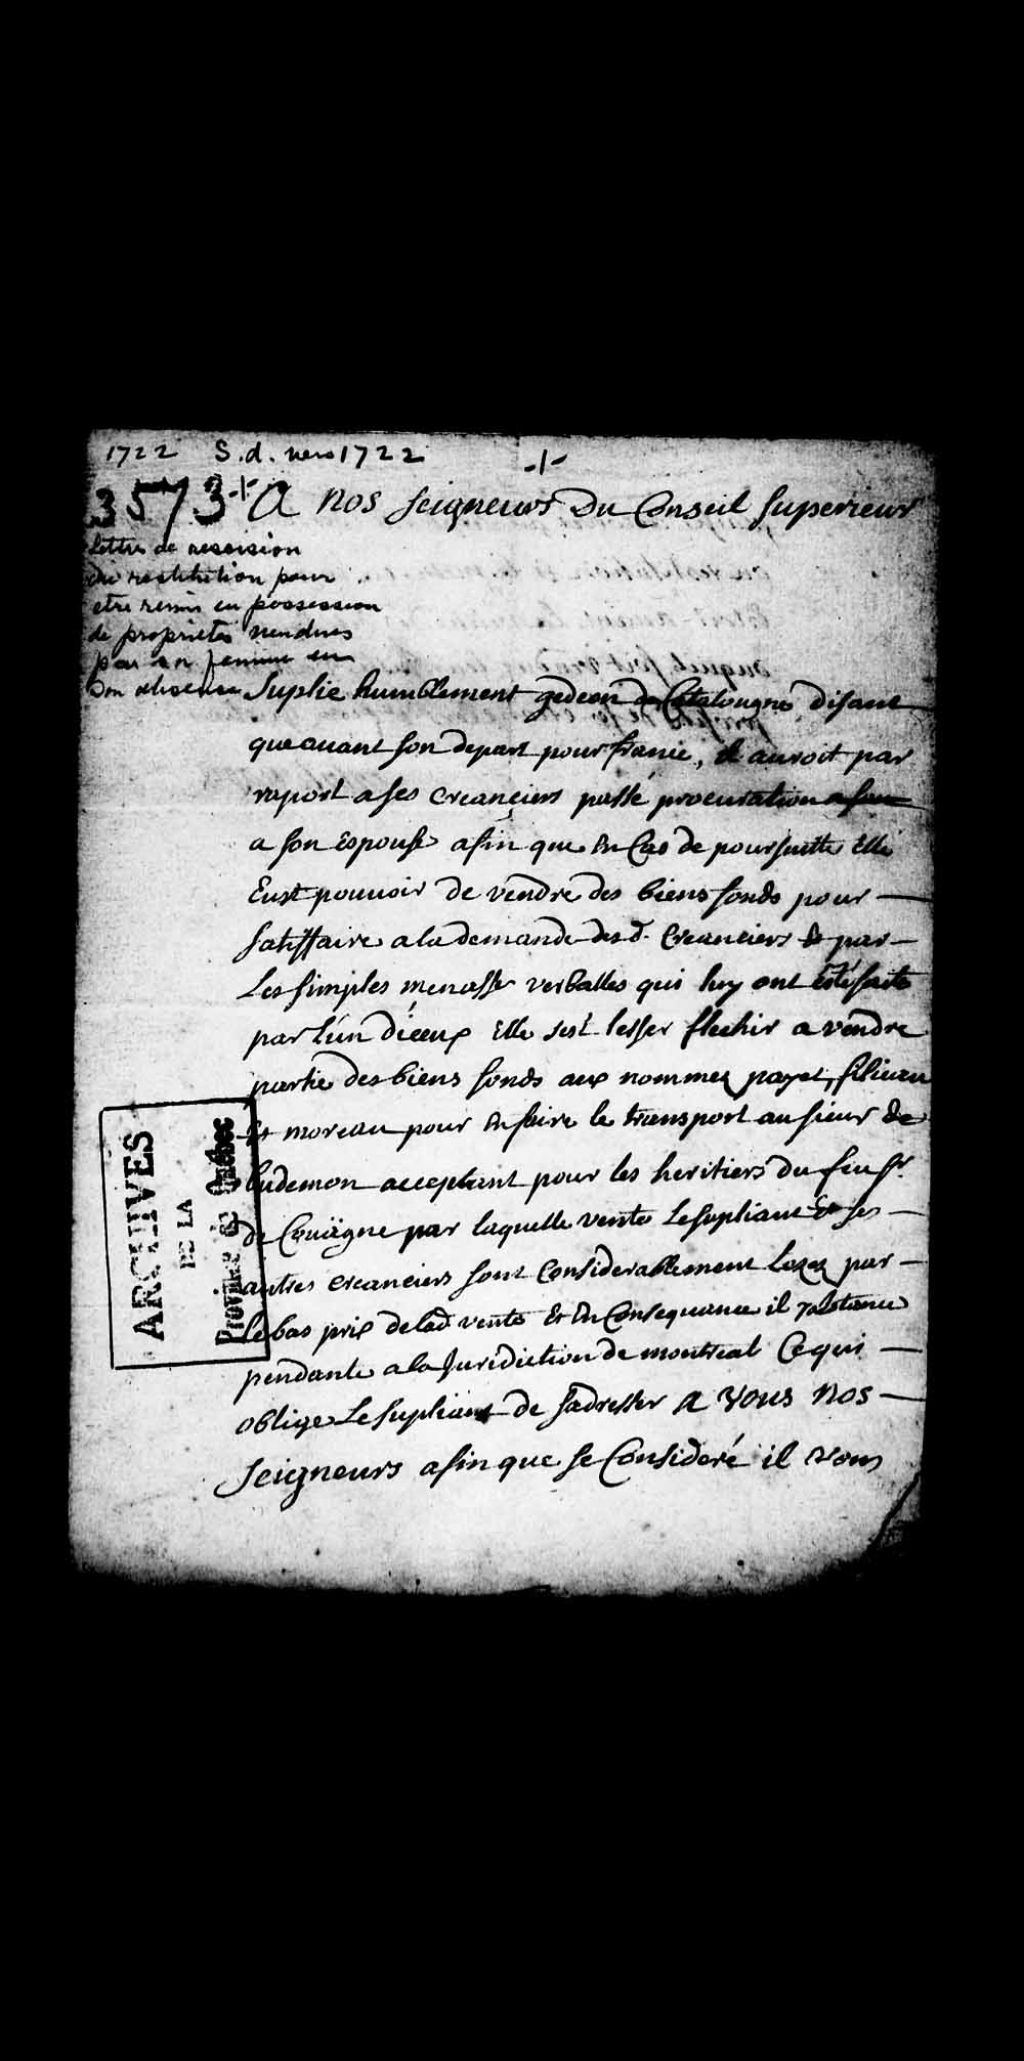 1722 S.d. vers 1722
3573 A Nos seigneurs Du Conseil superieur
Lettre de rescision
ou restitution pour
etre remis en possession
de propriétés vendues
par sa femme en
son absence
Suplie humblement gedeon de Catalougne disant
que auant son depart pour france, il auroit par
raport a ses creanciers passé procuration a son
a son Espouse afin que En Cas de poursuitte Elle
Eust pouuoir de vendre des biens fonds pour
satisffaire a la demande des d. Creanciers Et par
Les simples menasse verballes qui luy ont Esté faite
par l'un d'iceux Elle sest lesser flechir a vendre
partie des biens fonds aux nommez payet, filieau
Et moreau pour En faire le transport au sieur de
budemon acceptant pour les heritiers du feu sr.
de Couägne par laquelle vente Le supliant Et ses
autres creanciers sont Considerablement Lezez par
Le bas prix de lad vente Et En Consequance il y a Instance
pendante a la Juridiction de montreal Ce qui
oblige Le supliant de sadresser A Vous Nos
Seigneurs afin que se Consideré il vous
ARCHIVES
DE LA
Province de Québec